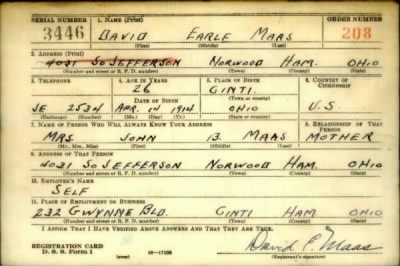 SERIAL NUMBER 1. NAME (Print) ORDER NUMBER
3446 DAVID EARLE MAAS 208
(First) (Middle) (Last)
2. ADDRESS (Print)
4031 SO JEFFERSON NORWOOD HAM. OHIO
(Number and street or R. F. D. number) (Town) (County) (State)
3. TELEPHONE 4. AGE IN YEARS 5. PLACE OF BIRTH 6. COUNTRY OF CITIZENSHIP
26 CINTI.
DATE OF BIRTH (Town or county)
JE 2534 APR. 14 1914 OHIO U.S.
(Exchange) (Number) (Mo.) (Day) (Yr.) (State or country)
7. NAME OF PERSON WHO WILL ALWAYS KNOW YOUR ADDRESS 8. RELATIONSHIP OF THAT PERSON
MRS. JOHN B. MAAS MOTHER
(Mr., Mrs., Miss) (First) (Middle) (Last)
9. ADDRESS OF THAT PERSON
4031 SO JEFFERSON NORWOOD HAM. OHIO
(Number and street or R. F. D. number) (Town) (County) (State)
10. EMPLOYER'S NAME
SELF
11. PLACE OF EMPLOYMENT OR BUSINESS
232 GWYNNE BLD. CINTI HAM OHIO
(Number and street or R. F. D. number) (Town) (County) (State)
I AFFIRM THAT I HAVE VERIFIED ABOVE ANSWERS AND THAT THEY ARE TRUE.
REGISTRATION CARD
D. S. S. Form 1 (over) David E. Maas
(Registrant's signature)